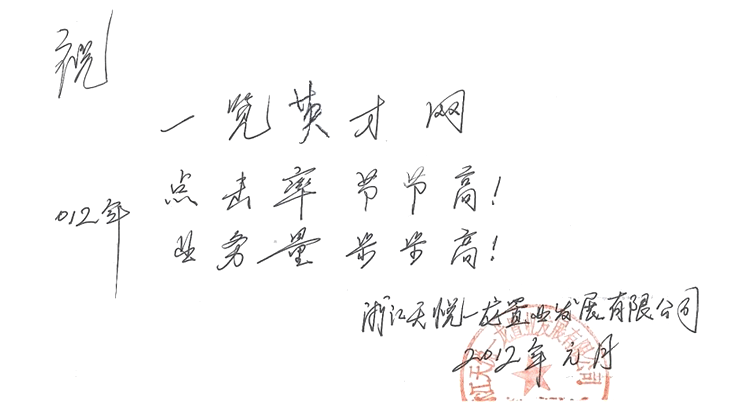 祝
一览英才网
012年
点击率节节高!
业务量步步高!
浙江天悦一龙置业发展有限公司
2012年元月